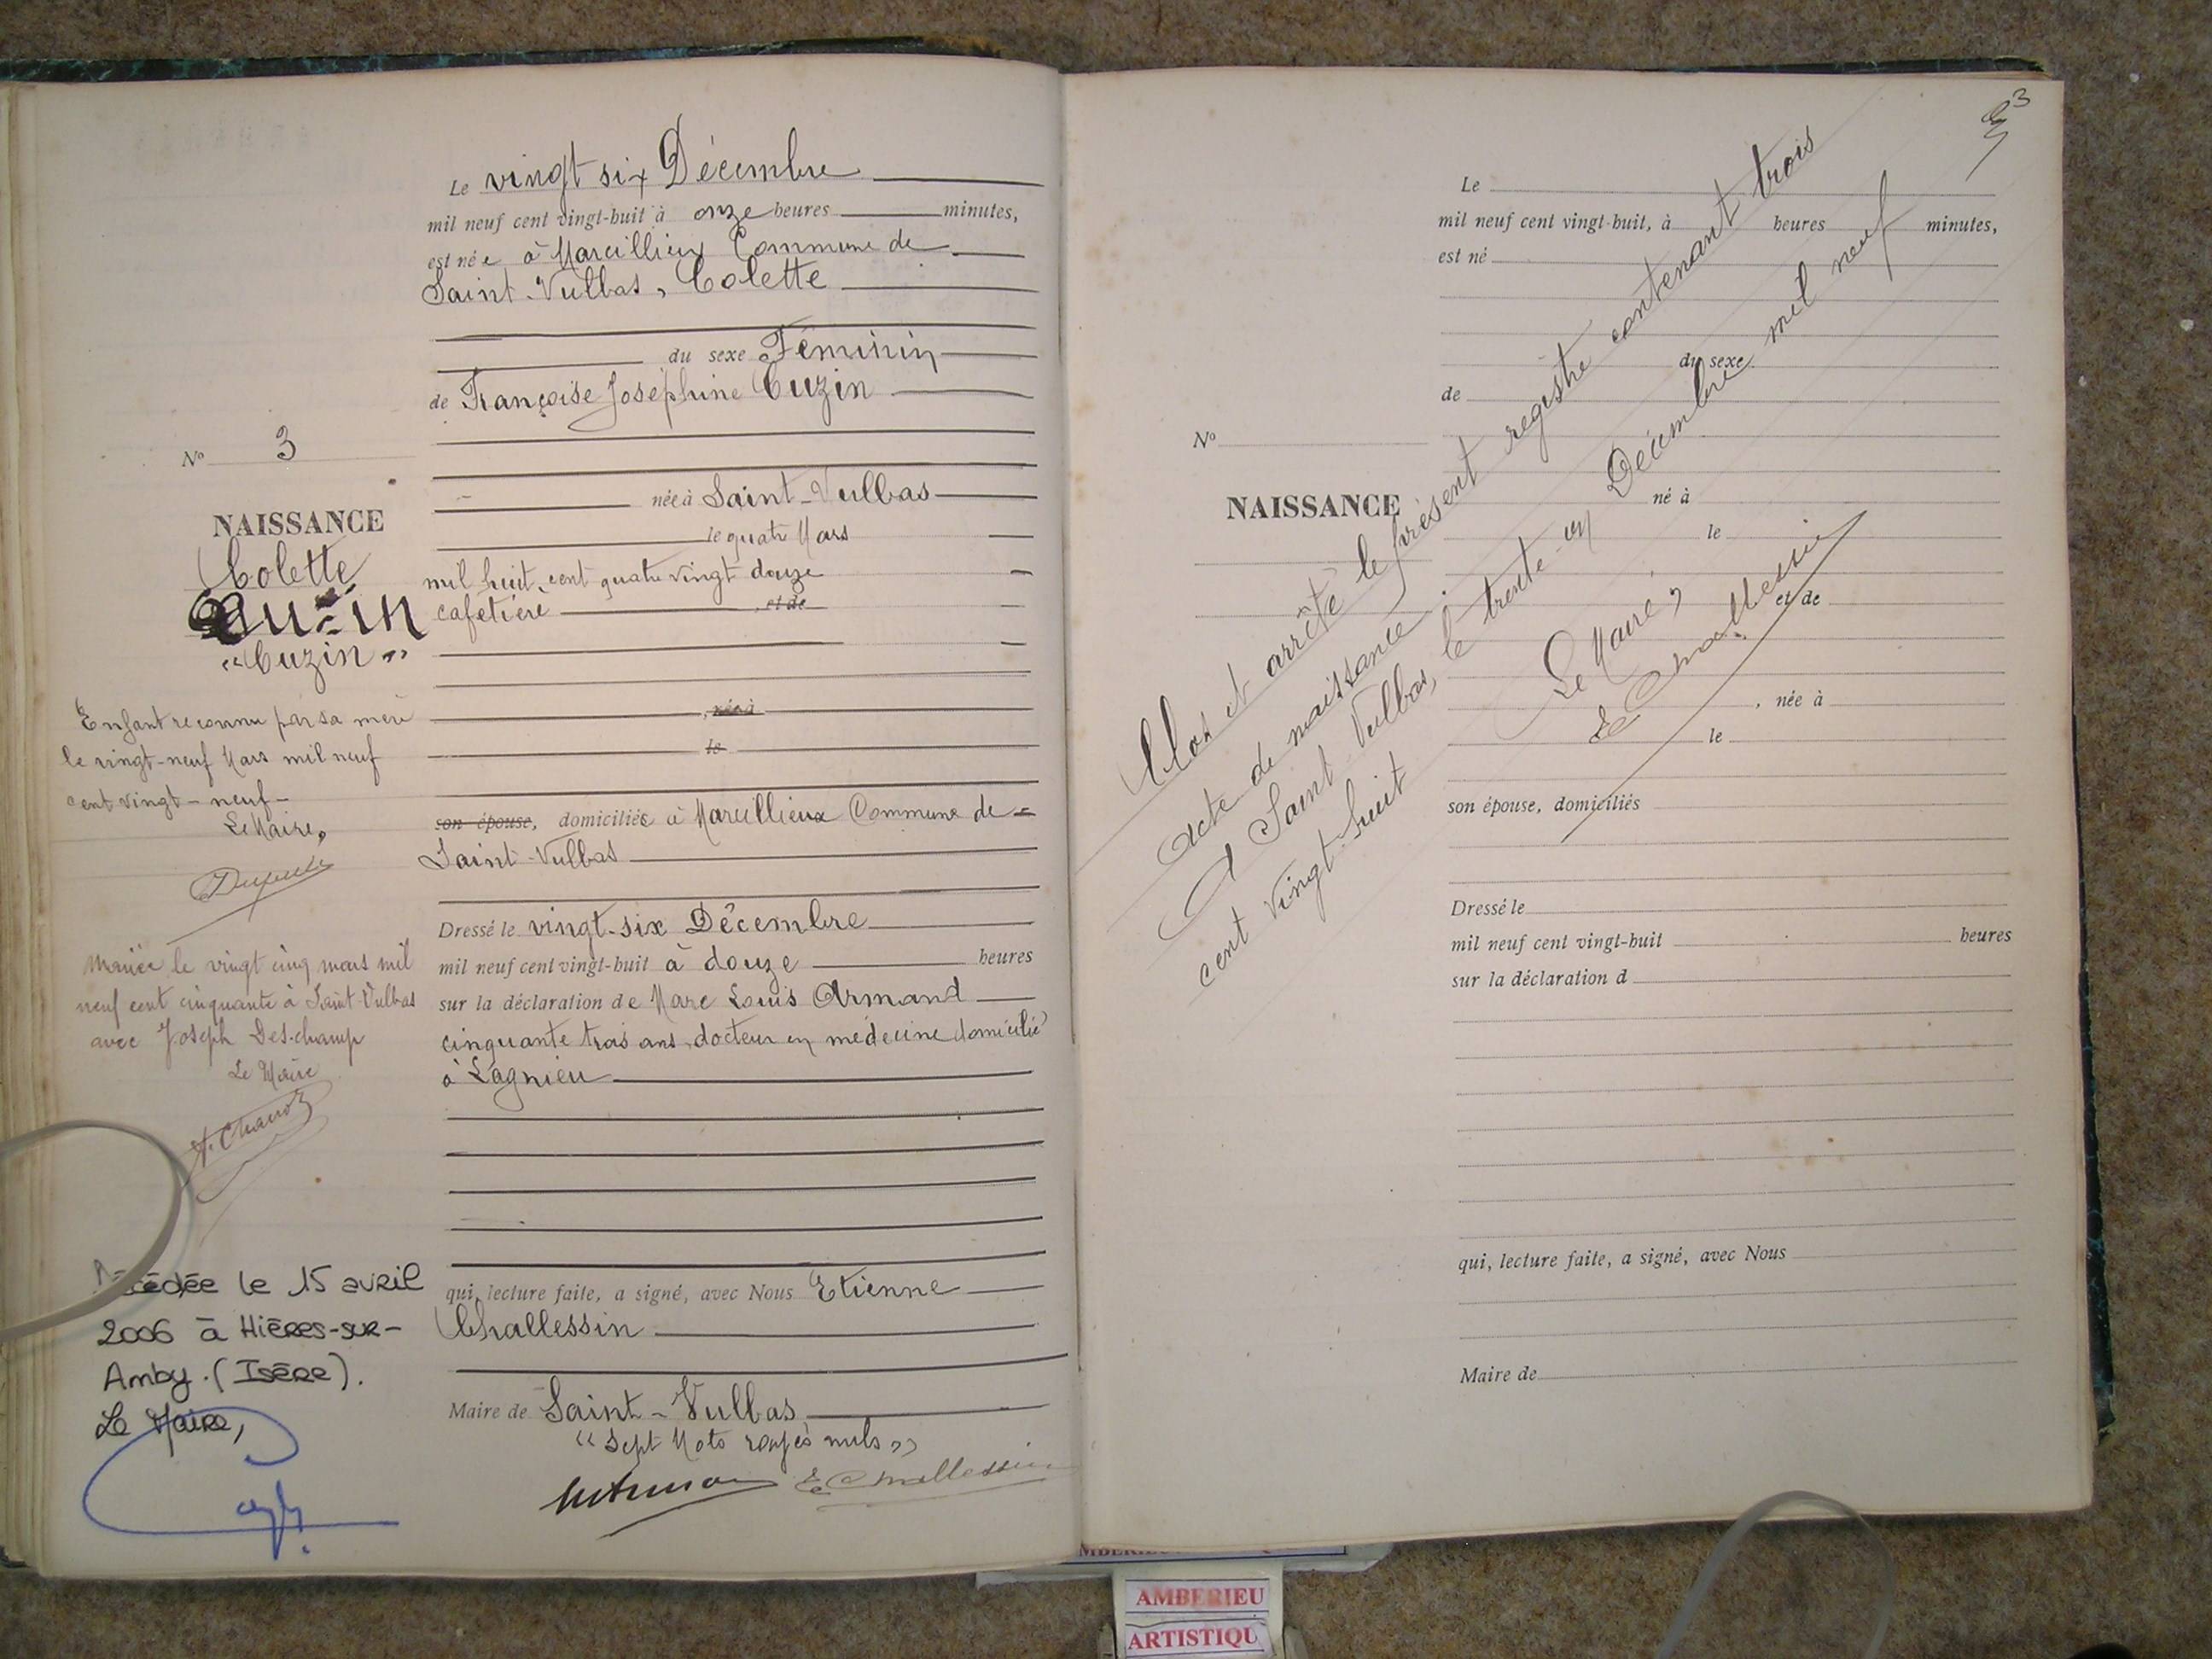 Le vingt six Décembre
mil neuf cent vingt-huit à onze heures minutes,
est née à Marcillieux Commune de
Saint-Vulbas, Colette
du sexe Féminin
de Françoise Joséphine Cuzin
N° 3
née à Saint-Vulbas
NAISSANCE
le quatre Mars
Colette
mil huit cent quatre vingt douze
cafetière , et de
Cuzin
"Cuzin"
, née à
le
Enfant reconnu par sa mère
le vingt-neuf Mars mil neuf
cent vingt-neuf-
Le Maire,
son épouse, domiciliée à Marcillieux Commune de
Saint-Vulbas
Dressé le vingt-six Décembre
mil neuf cent vingt-huit à douze heures
sur la déclaration de Marc Louis Armand
cinquante trois ans, docteur en médecine domicilié
à Lagnieu
Mariée le vingt cinq mars mil
neuf cent cinquante à Saint-Vulbas
avec Joseph Deschamp
Le Maire
qui, lecture faite, a signé, avec Nous Etienne
Challessin
Décédée le 15 avril
2006 à Hières-sur-
Amby. (Isère).
Le Maire,
Maire de Saint-Vulbas
"Sept Mots rayés nuls"
E Challessin
3
Le
mil neuf cent vingt-huit, à heures minutes,
est né
du sexe
de
N°
NAISSANCE
né à
le
et de
, née à
le
son épouse, domiciliés
Dressé le
mil neuf cent vingt-huit heures
sur la déclaration d
qui, lecture faite, a signé, avec Nous
Maire de
Clos et arrêté le présent registre contenant trois
acte de naissance.
A Saint-Vulbas, le trente-un Décembre mil neuf
cent vingt-huit
Le Maire,
E Challessin
AMBERIEU
ARTISTIQU